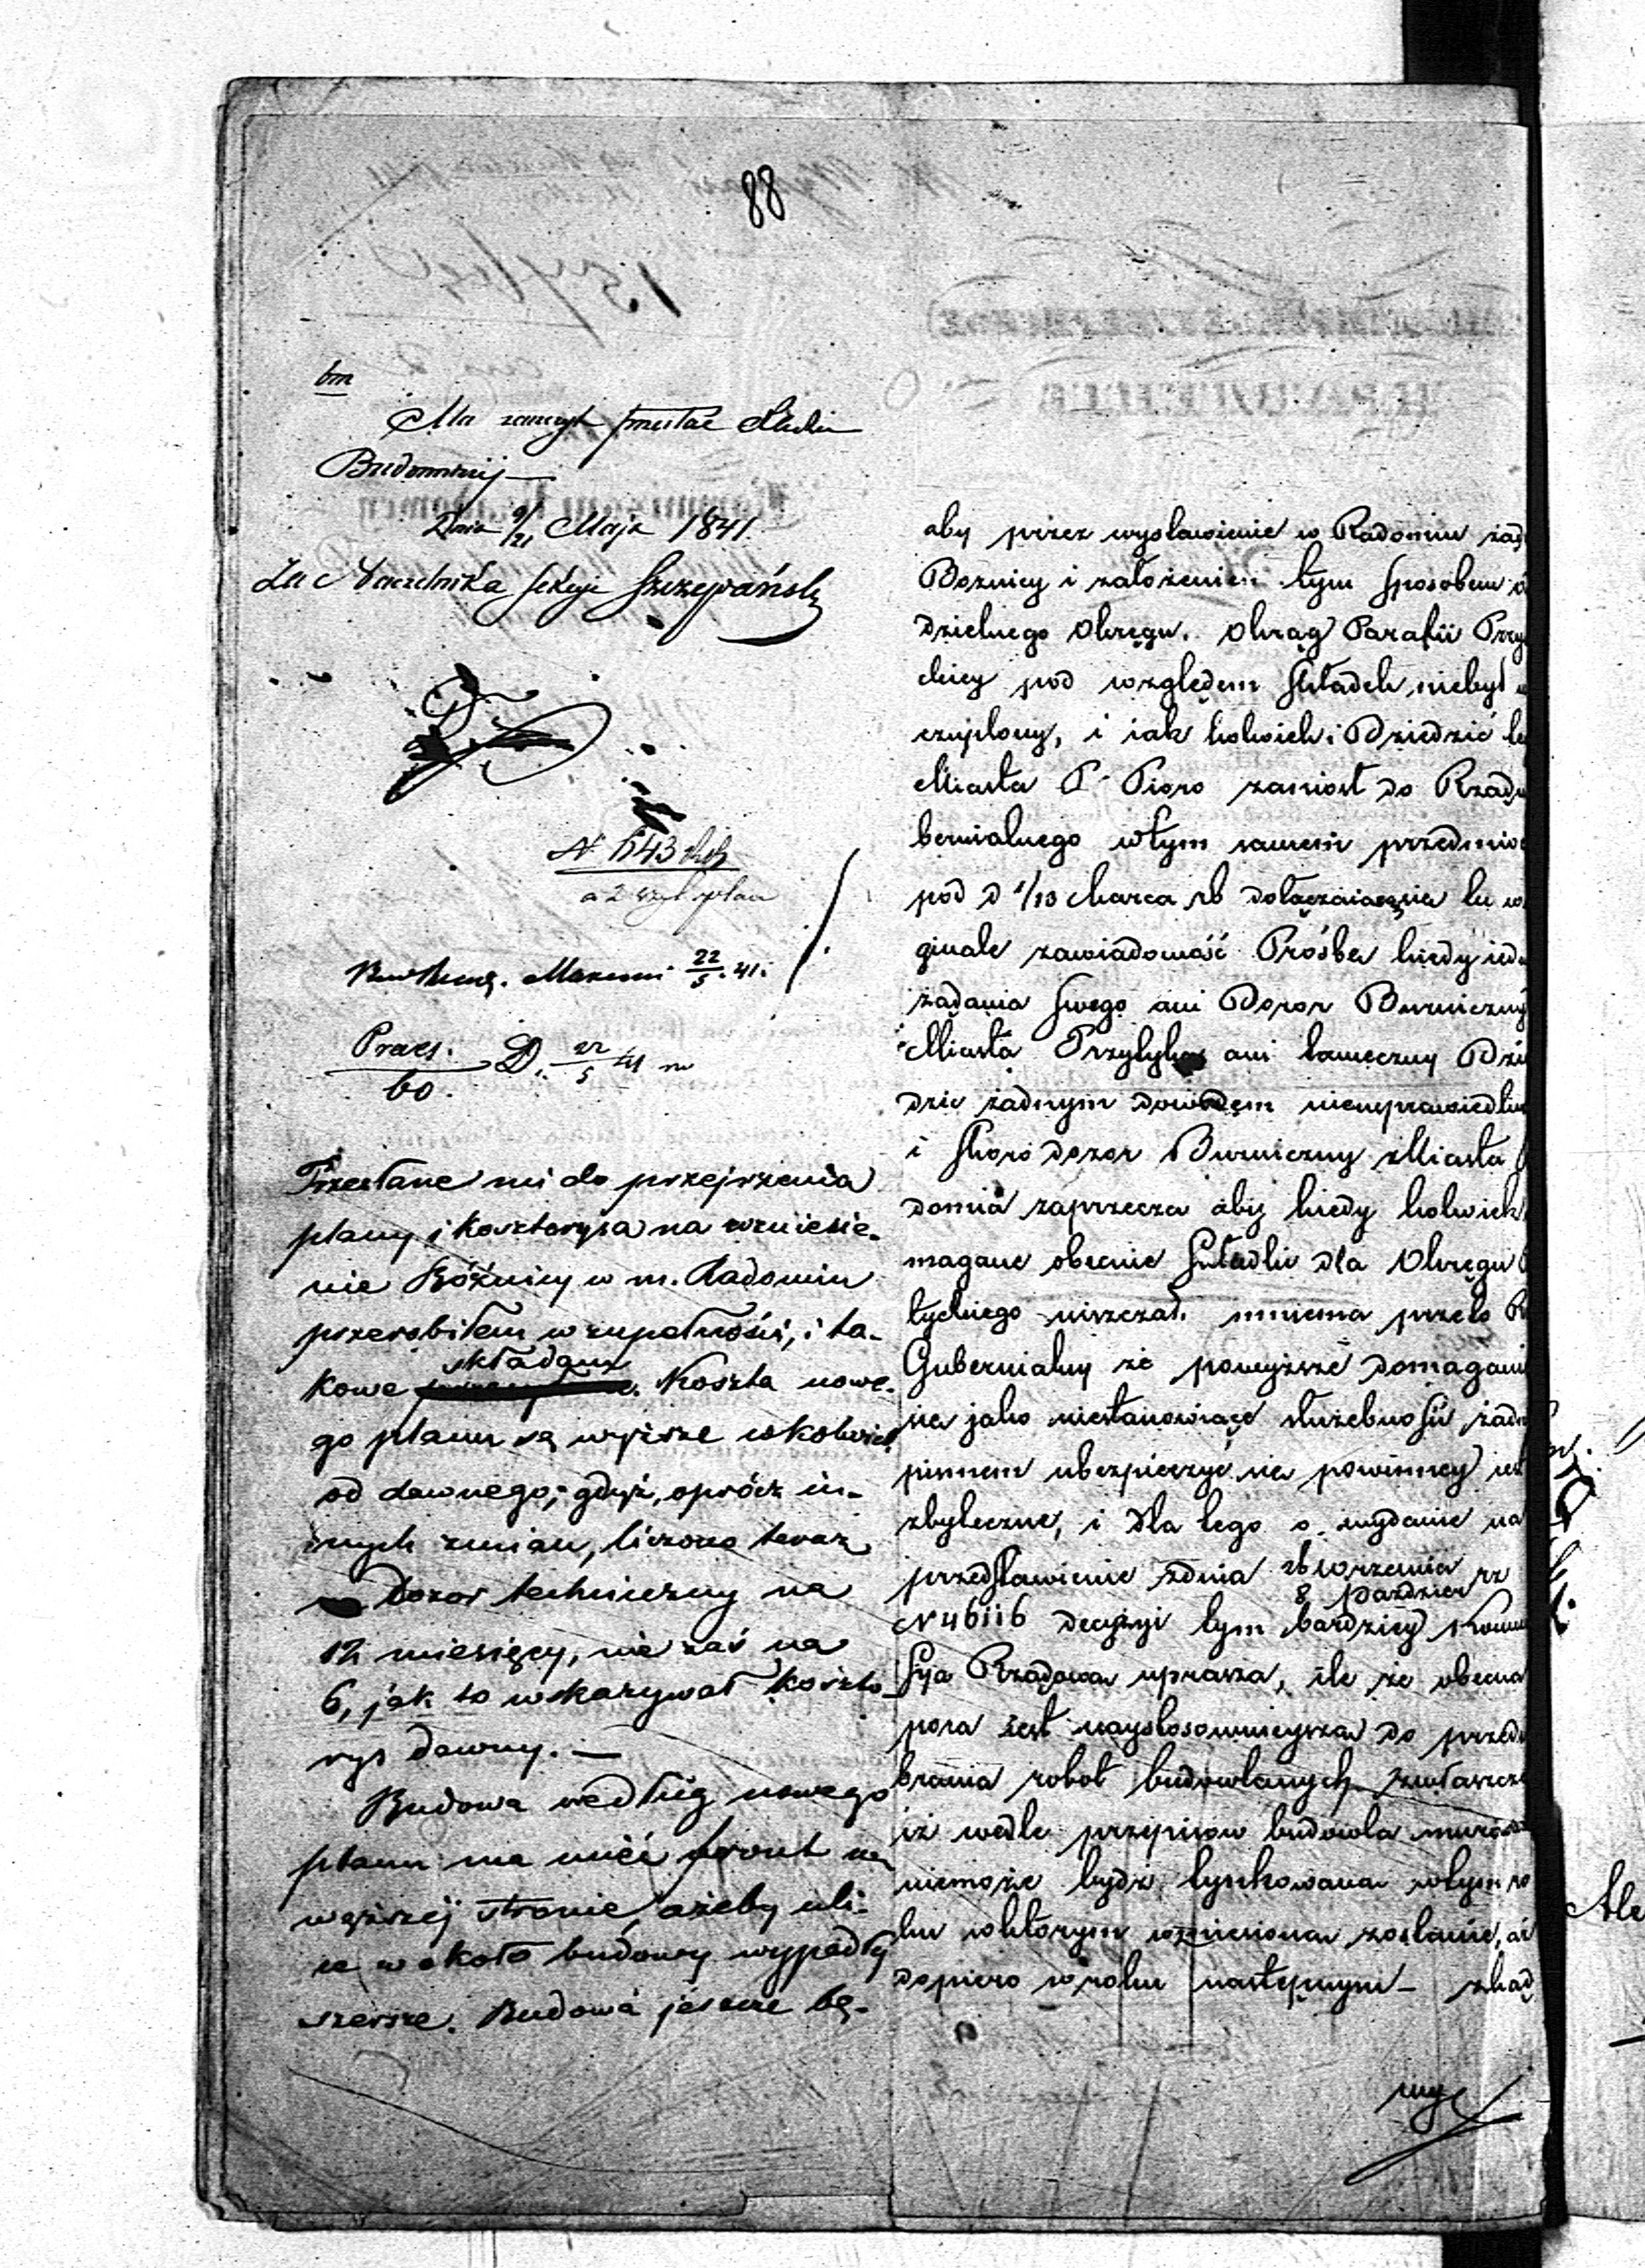 88
bm
Ma zaszczyt przesłać
Budowniczej
Dnia 9/21 Maja 1841.
Za Naczelnika Sekcyi Szczepański
N 643
a 2 egz plan
22/5 41.
Praes. D. 22/5 41
60.
Przesłane mi do przejrzenia
plany i kosztorysa na wzniesie-
nie Bóżnicy w m. Radomiu
przerobiłem w zupełności, i ta-
kowe składam. Koszta nowe-
go planu są wyższe cokolwiek
od dawnego; gdyż, oprócz in-
nych zmian, liczono teraz
Dozór techniczny na
12 miesięcy, nie zaś na
6, jak to wskazywał koszto-
rys dawny. —
Budowa według nowego
planu ma mieć front na
węższej stronie, ażeby uli-
ce w około budowy wypadły
szersze. Budowa jeszcze bę-
aby przez wystawienie w Radomiu
Boznicy i założenie tym sposobem
dzielnego Okręgu. Okrąg Parafii Przy
kiey pod względem Składek niebył
czuplony, i iak kolwiek i Dziedzić
Miasta P Pioro zaniosł do Rządu
bernialnego wtym samem przedmio
pod d 1/13 Marca rb dołączaiącą się tu w
ginale zawiadomość Prośbe kiedy ied
żądania swego ani Dozor Bozniczny
Miasta Przytyka ani tameczny Dzie
dzic żadnym dowodem nieusprawiedliw
i skoro dozor Bozniczny Miasta
domia zaprzecza aby kiedy kolwiek
magane obecnie Składki dla Okręgu
tyckiego uiszczał. mniema przeto R
Gubernialny że powyższe domagani
się jako niestanowiące służebnosci żad
pismem ubezpieczyć się powinney iest
zbyteczne, i dla tego o wydanie na
przedstawienie zdnia 26 Wrzesnia / 8 Pazdzier rz
N 46116 decyzyi tym bardziey Kommi
syi Rządowa uprasza, ile że obecna
pora iest naystosownieysza do przed
brania robot budowlanych zwłaszcza
iż wedle przepisow budowla murow
niemoże bydź tynkowana wtym ro
ku wktorym wzniesiona zostanie, aż
dopiero w roku następnym - zkąd